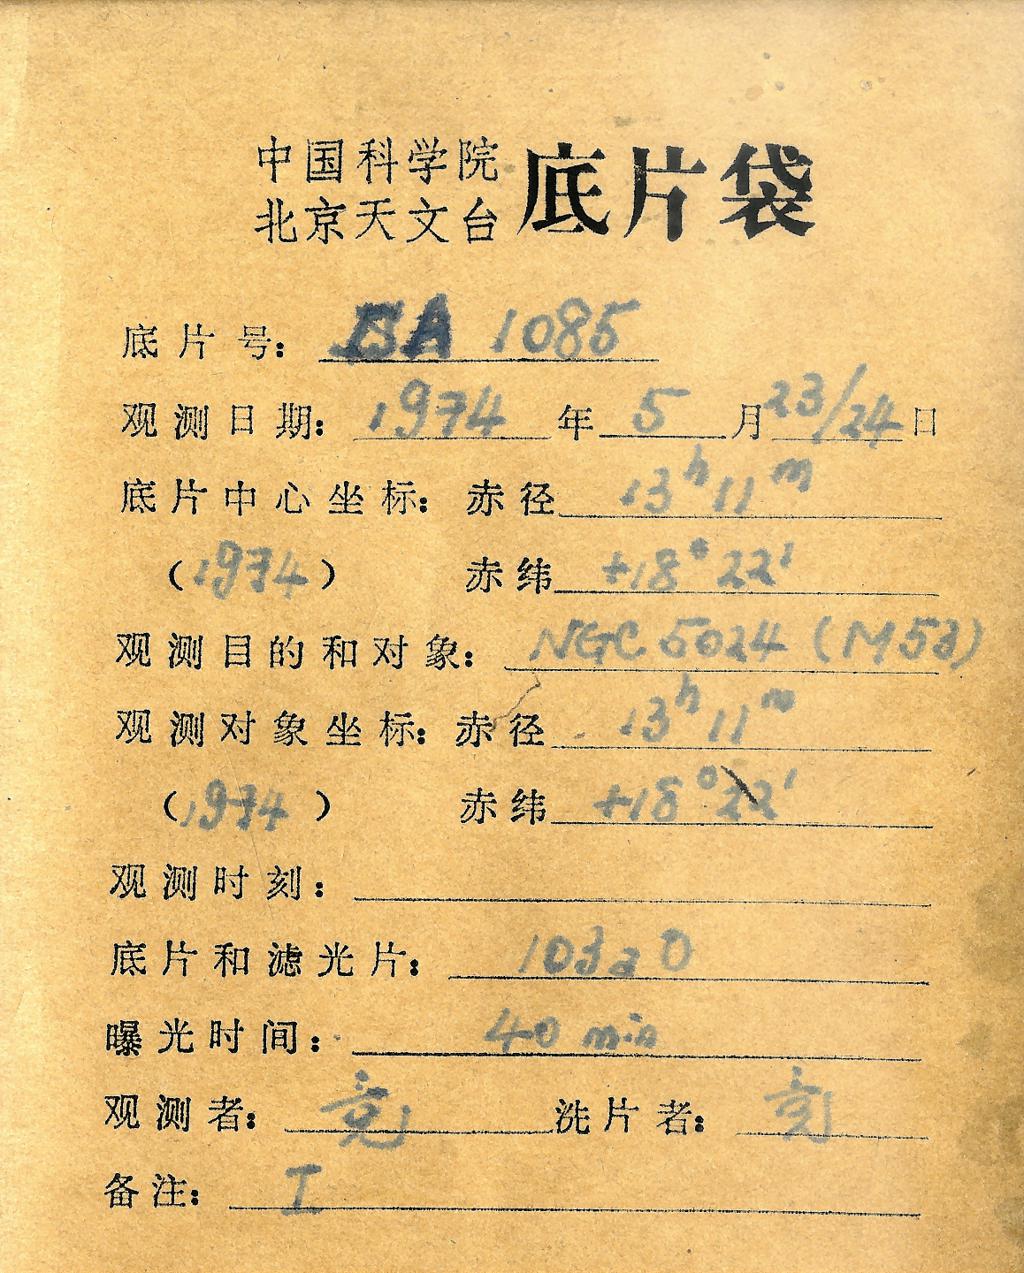 中国科学院
北京天文台 底片袋
底片号： BA 1085
观测日期： 1974 年 5 月 23/24 日
底片中心坐标： 赤径 13h 11m
（1974） 赤纬 +18° 22'
观测目的和对象： NGC 5024 (M53)
观测对象坐标： 赤径 13h 11m
（1974） 赤纬 +18° 22'
观测时刻：
底片和滤光片： 103a O
曝光时间： 40 min
观测者： 洗片者：
备注： I